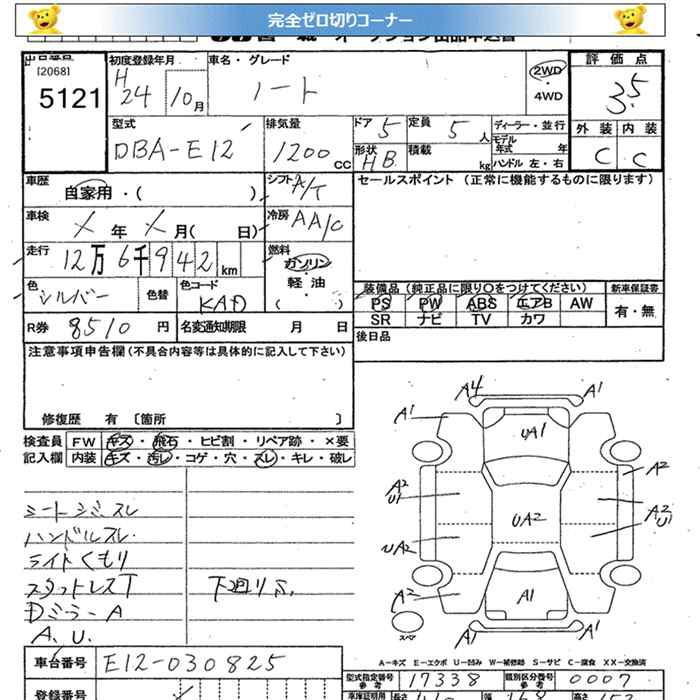 完全ゼロ切りコーナー
出品番号 初度登録年月 車名・グレード 評価点
[2068] H ノート 2WD 3.5
5121 24 10月 ・ 4WD 外装 内装
型式 排気量 ドア 5 定員 5人 ディーラー・並行 C C
DBA-E12 1200cc モデル年式 年
形状 HB 積載 kg ハンドル 左・右
車歴 シフト A/T セールスポイント (正常に機能するものに限ります)
自家用・( )
車検 冷房 AA/C
X年X月( 日)
走行 燃料
12万6千942km ガソリン
色 色替 色コード ・軽油 装備品 (純正品に限り〇をつけてください) 新車保証書
シルバー KAD ( ) PS PW ABS エアB AW 有・無
R券 8510円 名変通知期限 月 日 SR ナビ TV カワ
注意事項申告欄(不具合内容等は具体的に記入して下さい) 後日品
修復歴 有 〔箇所 〕
検査員 FW キズ・飛石・ヒビ割・リペア跡・×要
記入欄 内装 キズ・汚レ・コゲ・穴・スレ・キレ・破レ
A4 A1
A1
UA1
A2
A2 U1
A2 U1
UA2
UA2
A2
A1
A1 A1
スペア
シートシミスレ
ハンドルスレ
ライトくもり
スタットレスT 下廻りサ.
Dミラー A
A.U.
A-キズ E-エクボ U-凹み W-補修跡 S-サビ C-腐食 XX-交換済
車台番号 E12-030825
型式指定番号 参考 17338 類別区分番号 参考 0007
登録番号 車庫証明用 長さ 幅 168 高さ